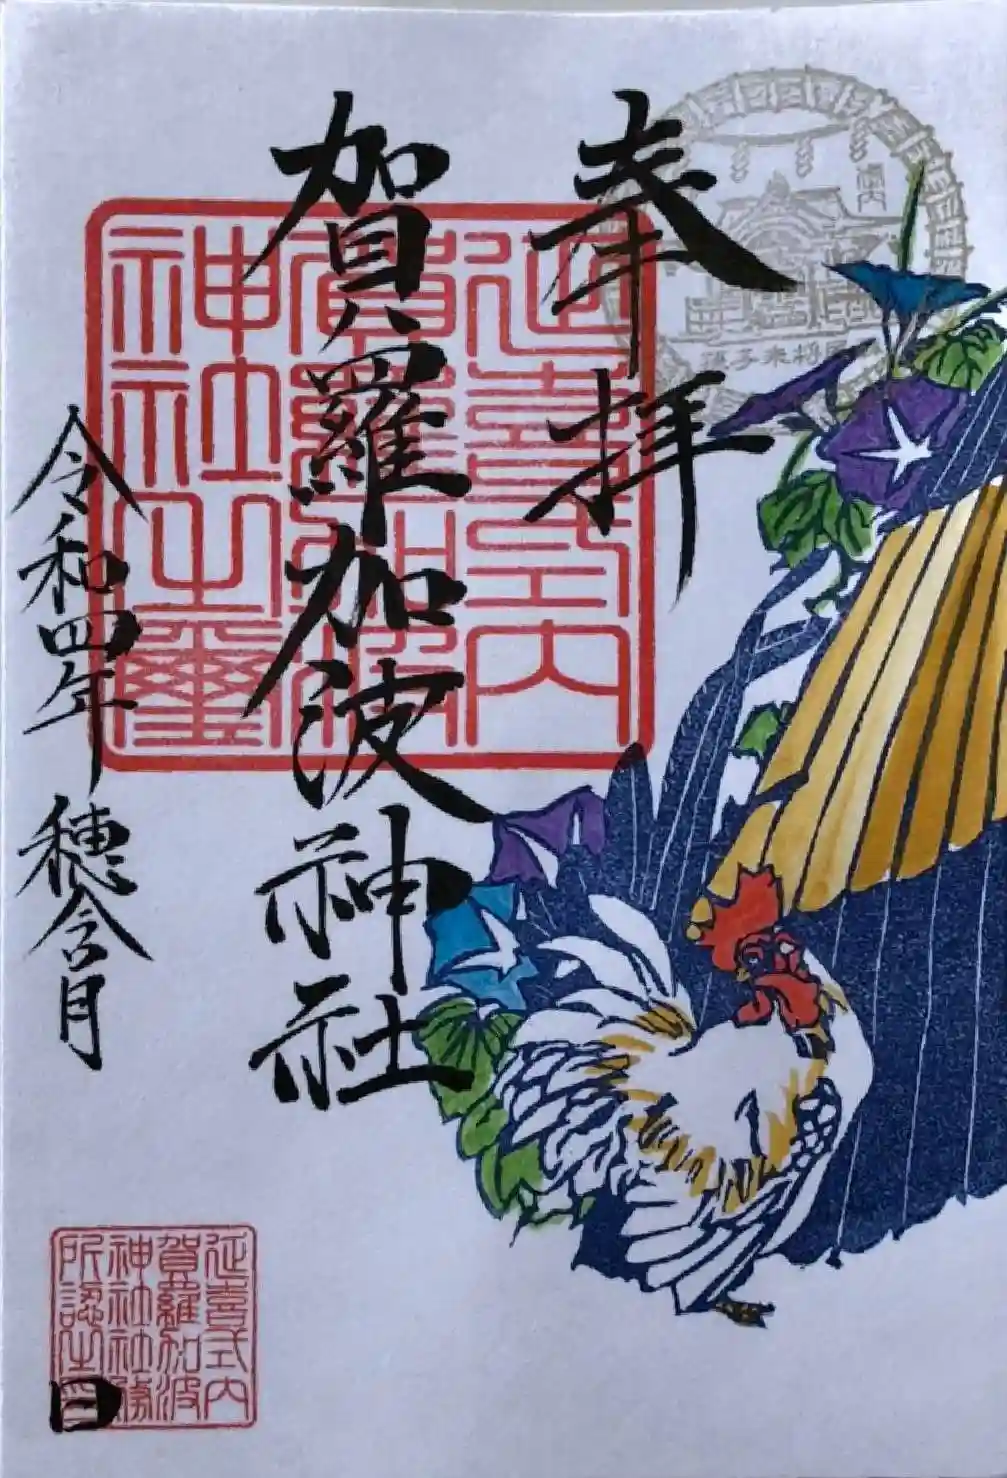 奉拝
延喜式内
賀羅加波
神社之璽
賀羅加波神社
令和四年 穂含月
日
延喜式内
賀羅加波
神社社務
所認之印